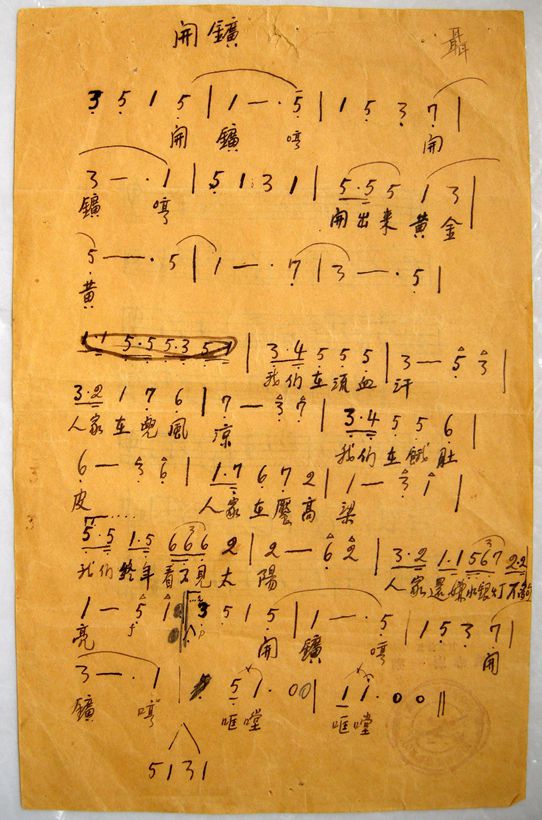 開鑛
聶
3 5 1 5 | 1 — · 5 | 1 5 3 7 |
開 鑛 哼 開
3 — · 1 | 5 1 3 1 | 5·5 5 1 3 |
鑛 哼 開出來 黃 金
5 — · 5 | 1 — · 7 | 3 — · 5 |
黃
1 1 5·5 5·3 5 1 | 3·4 5 5 5 | 3 — 5 3 |
我們在流血 汗
3·2 1 7 6 | 7 — 3 7 | 3·4 5 5 6 |
人家在兜風 涼 我們在餓肚
6 — 3 6 | 1·7 6 7 2 | 1 — 3 1 |
皮 人家在壓高 梁
5·5 1·5 6 6 6 2 | 2 — 6 2 | 3·2 1·1 5 6 7 2·2
我們終年看不見太 陽 人家還嫌水銀灯不夠
1 — 5 1 3 5 1 5 | 1 — · 5 | 1 5 3 7 |
亮 f p 開 鑛 哼 開
3 — · 1 | 5 1 · 0 0 | 1 1 · 0 0 ‖
鑛 哼 哐噹 哐噹
5 1 3 1